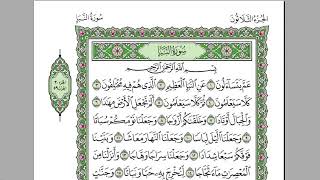 سُورَةُ النَّبَإِ
الجُزْءُ الثَّلَاثُونَ
سُورَةُ النَّبَإِ
بِسْمِ اللَّهِ الرَّحْمَٰنِ الرَّحِيمِ
عَمَّ يَتَسَاءَلُونَ ١ عَنِ النَّبَإِ الْعَظِيمِ ٢ الَّذِي هُمْ فِيهِ مُخْتَلِفُونَ ٣
كَلَّا سَيَعْلَمُونَ ٤ ثُمَّ كَلَّا سَيَعْلَمُونَ ٥ أَلَمْ نَجْعَلِ الْأَرْضَ مِهَادًا ٦
وَالْجِبَالَ أَوْتَادًا ٧ وَخَلَقْنَاكُمْ أَزْوَاجًا ٨ وَجَعَلْنَا نَوْمَكُمْ سُبَاتًا
٩ وَجَعَلْنَا اللَّيْلَ لِبَاسًا ١٠ وَجَعَلْنَا النَّهَارَ مَعَاشًا ١١ وَبَنَيْنَا
فَوْقَكُمْ سَبْعًا شِدَادًا ١٢ وَجَعَلْنَا سِرَاجًا وَهَّاجًا ١٣ وَأَنزَلْنَا مِنَ
الْمُعْصِرَاتِ مَاءً ثَجَّاجًا ١٤ لِّنُخْرِجَ بِهِ حَبًّا وَنَبَاتًا ١٥ وَجَنَّاتٍ